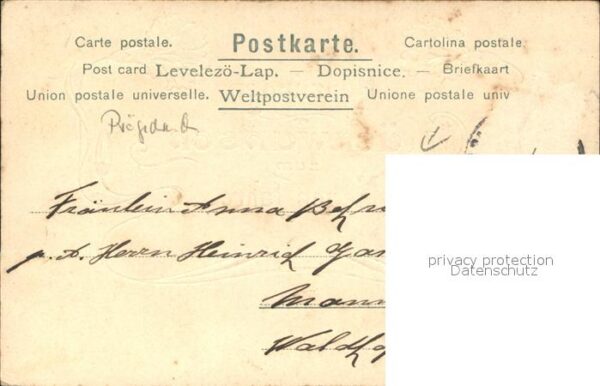 Carte postale. Postkarte. Cartolina postale.
Post card Levelező-Lap. — Dopisnice. — Briefkaart
Union postale universelle. Weltpostverein Unione postale univ
Fräulein Anna
p. A. Herrn Heinrich
privacy protection
Datenschutz